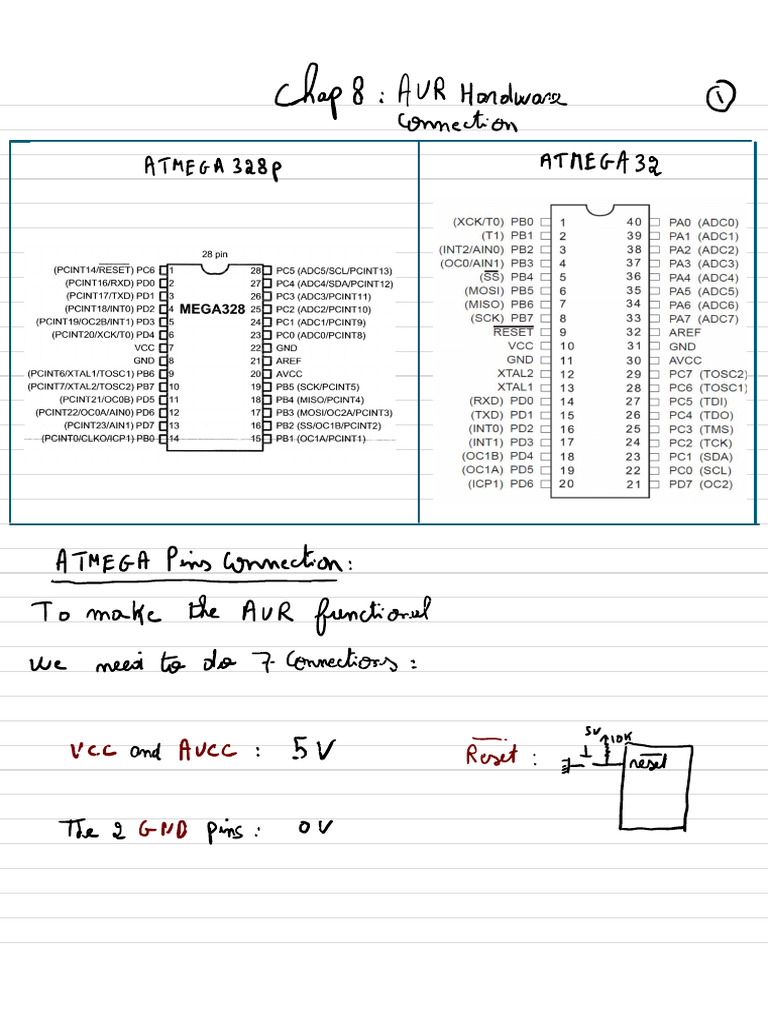 Chap 8 : AVR Hardware
Connection
1
ATMEGA 328p
28 pin
(PCINT14/RESET) PC6 1 28 PC5 (ADC5/SCL/PCINT13)
(PCINT16/RXD) PD0 2 27 PC4 (ADC4/SDA/PCINT12)
(PCINT17/TXD) PD1 3 26 PC3 (ADC3/PCINT11)
(PCINT18/INT0) PD2 4 MEGA328 25 PC2 (ADC2/PCINT10)
(PCINT19/OC2B/INT1) PD3 5 24 PC1 (ADC1/PCINT9)
(PCINT20/XCK/T0) PD4 6 23 PC0 (ADC0/PCINT8)
VCC 7 22 GND
GND 8 21 AREF
(PCINT6/XTAL1/TOSC1) PB6 9 20 AVCC
(PCINT7/XTAL2/TOSC2) PB7 10 19 PB5 (SCK/PCINT5)
(PCINT21/OC0B) PD5 11 18 PB4 (MISO/PCINT4)
(PCINT22/OC0A/AIN0) PD6 12 17 PB3 (MOSI/OC2A/PCINT3)
(PCINT23/AIN1) PD7 13 16 PB2 (SS/OC1B/PCINT2)
(PCINT0/CLKO/ICP1) PB0 14 15 PB1 (OC1A/PCINT1)
ATMEGA32
(XCK/T0) PB0 1 40 PA0 (ADC0)
(T1) PB1 2 39 PA1 (ADC1)
(INT2/AIN0) PB2 3 38 PA2 (ADC2)
(OC0/AIN1) PB3 4 37 PA3 (ADC3)
(SS) PB4 5 36 PA4 (ADC4)
(MOSI) PB5 6 35 PA5 (ADC5)
(MISO) PB6 7 34 PA6 (ADC6)
(SCK) PB7 8 33 PA7 (ADC7)
RESET 9 32 AREF
VCC 10 31 GND
GND 11 30 AVCC
XTAL2 12 29 PC7 (TOSC2)
XTAL1 13 28 PC6 (TOSC1)
(RXD) PD0 14 27 PC5 (TDI)
(TXD) PD1 15 26 PC4 (TDO)
(INT0) PD2 16 25 PC3 (TMS)
(INT1) PD3 17 24 PC2 (TCK)
(OC1B) PD4 18 23 PC1 (SDA)
(OC1A) PD5 19 22 PC0 (SCL)
(ICP1) PD6 20 21 PD7 (OC2)
ATMEGA Pins Connection :
To make the AVR functional
we need to do 7 Connections :
VCC and AVCC : 5V
Reset :
5V
10K
reset
The 2 GND pins : 0V